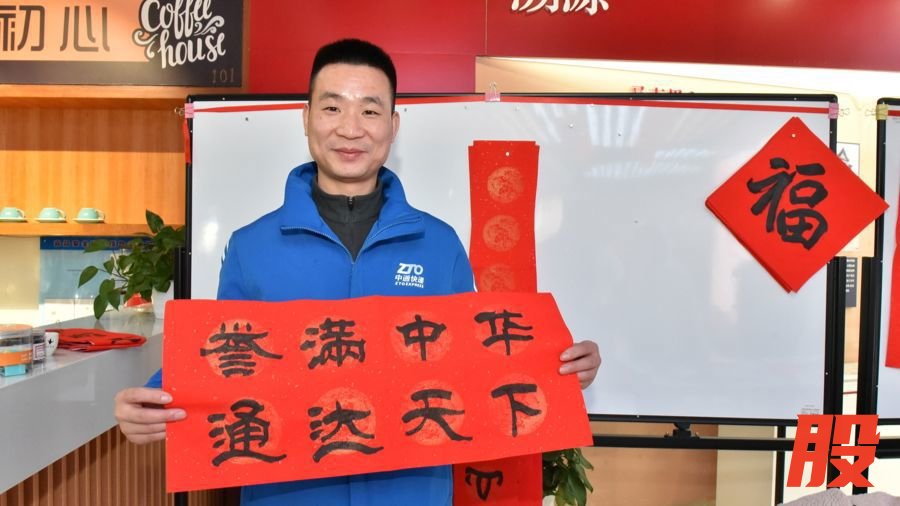 初心
Coffee
house
101
福
ZTO
中通快递
ZTO EXPRESS
誉满中华
通达天下
股